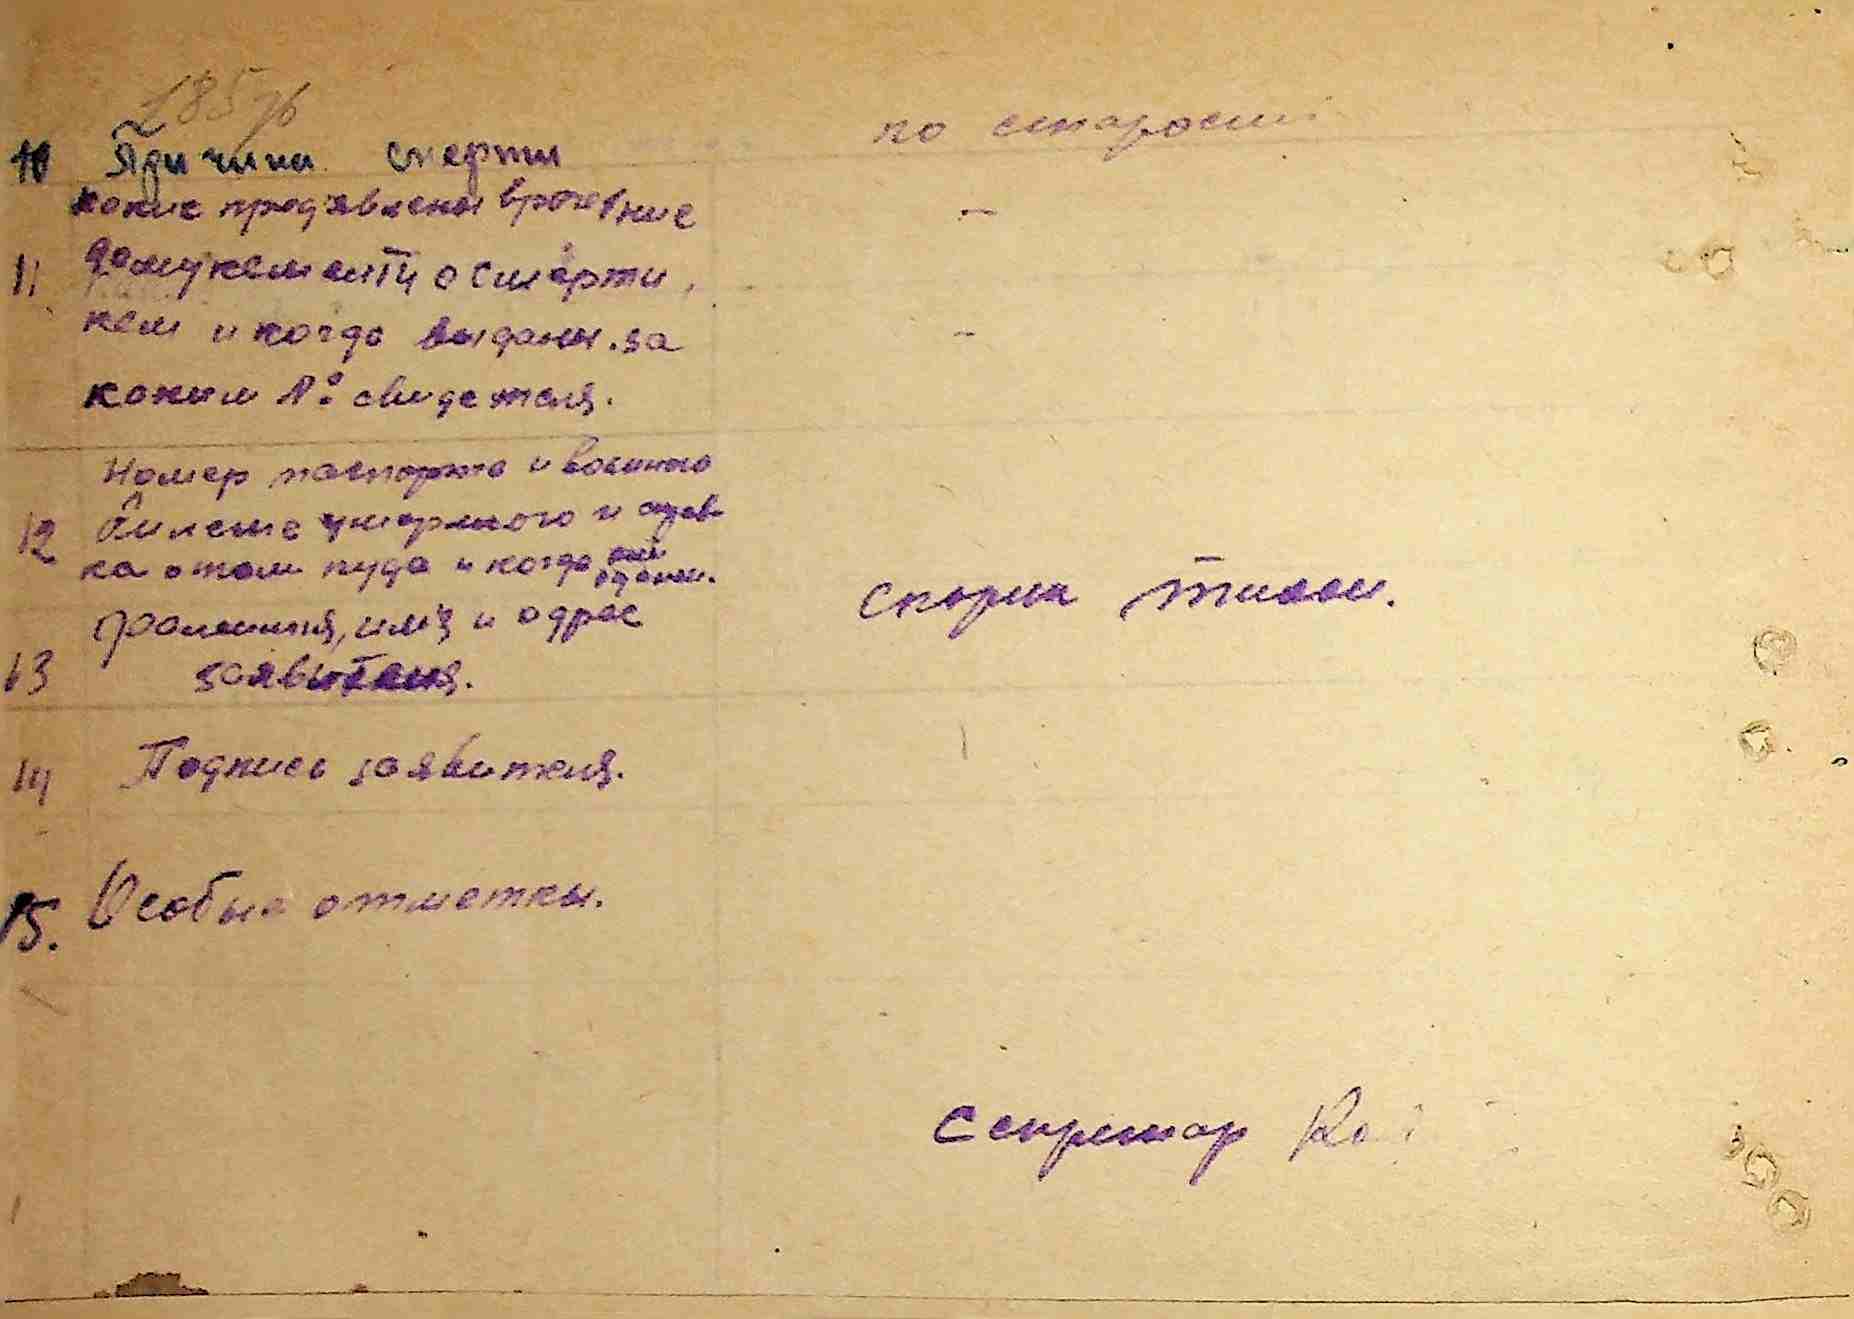 185 об
10 Причина смерти по старости
какие предявлены врачебние -
11 домукементи о смерти,
кем и когда выданы. за -
каким № свидетеля.
Номер паспорта и военного
12 билета умершого и
ка о том куда и когда они
фамилия, имя и адрес
13 заявителя.
14 Подпись заявителя.
15. Особые отметки.
Секретар